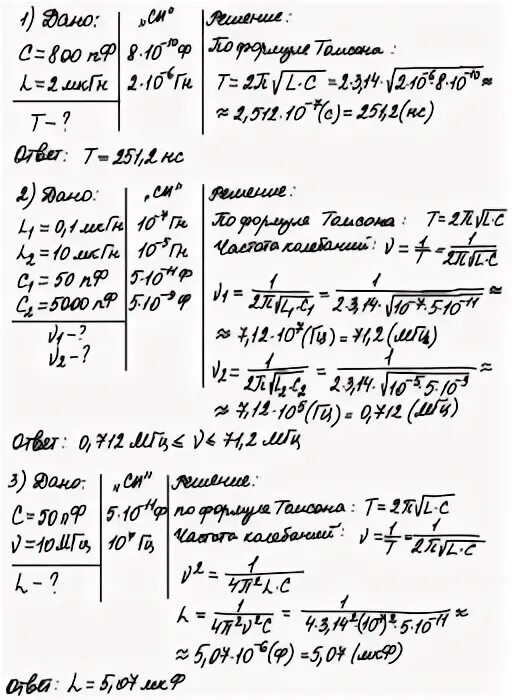 1) Дано:
C = 800 пФ
L = 2 мкГн
T - ?
„СИ"
8·10⁻¹⁰ Ф
2·10⁻⁶ Гн
Решение:
По формуле Томсона:
T = 2π√L·C = 2·3,14·√2·10⁻⁶·8·10⁻¹⁰ ≈
≈ 2,512·10⁻⁷ (с) = 251,2 (нс)
Ответ: T = 251,2 нс
2) Дано:
L₁ = 0,1 мкГн
L₂ = 10 мкГн
C₁ = 50 пФ
C₂ = 5000 пФ
ν₁ - ?
ν₂ - ?
„СИ"
10⁻⁷ Гн
10⁻⁵ Гн
5·10⁻¹¹ Ф
5·10⁻⁹ Ф
Решение:
По формуле Томсона: T = 2π√L·C
Частота колебаний: ν = 1/T = 1/2π√L·C
ν₁ = 1/2π√L₁·C₁ = 1/2·3,14·√10⁻⁷·5·10⁻¹¹ ≈
≈ 7,12·10⁷ (Гц) = 71,2 (МГц)
ν₂ = 1/2π√L₂·C₂ = 1/2·3,14·√10⁻⁵·5·10⁻⁹ ≈
≈ 7,12·10⁵ (Гц) = 0,712 (МГц)
Ответ: 0,712 МГц ≤ ν ≤ 71,2 МГц
3) Дано:
C = 50 пФ
ν = 10 МГц
L - ?
„СИ"
5·10⁻¹¹ Ф
10⁷ Гц
Решение:
по формуле Томсона: T = 2π√L·C
Частота колебаний: ν = 1/T = 1/2π√L·C
ν² = 1/4π²L·C
L = 1/4π²ν²C = 1/4·3,14²·(10⁷)²·5·10⁻¹¹ ≈
≈ 5,07·10⁻⁶ (Ф) = 5,07 (мкФ)
Ответ: L = 5,07 мкФ